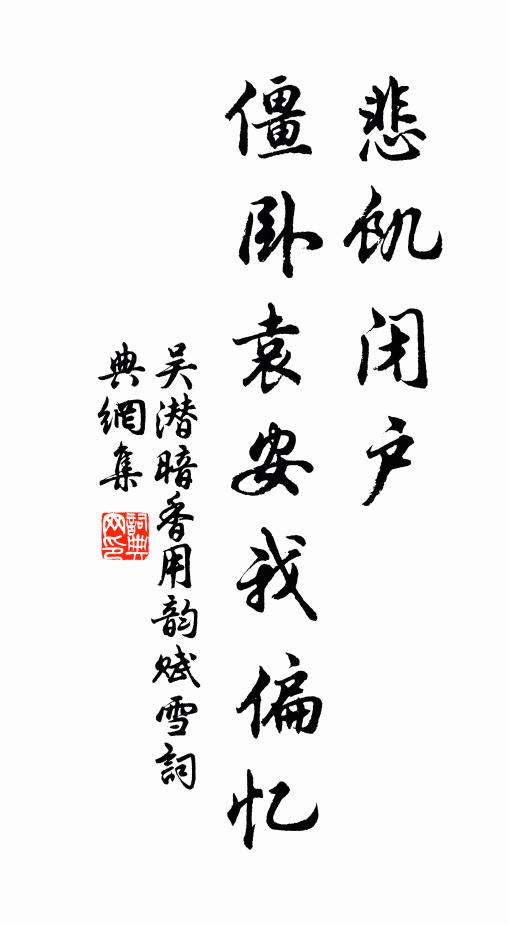 悲飢闭户
僵卧袁安我偏忆
吴潜暗香用韵赋雪詞
典網集
詞典
网印